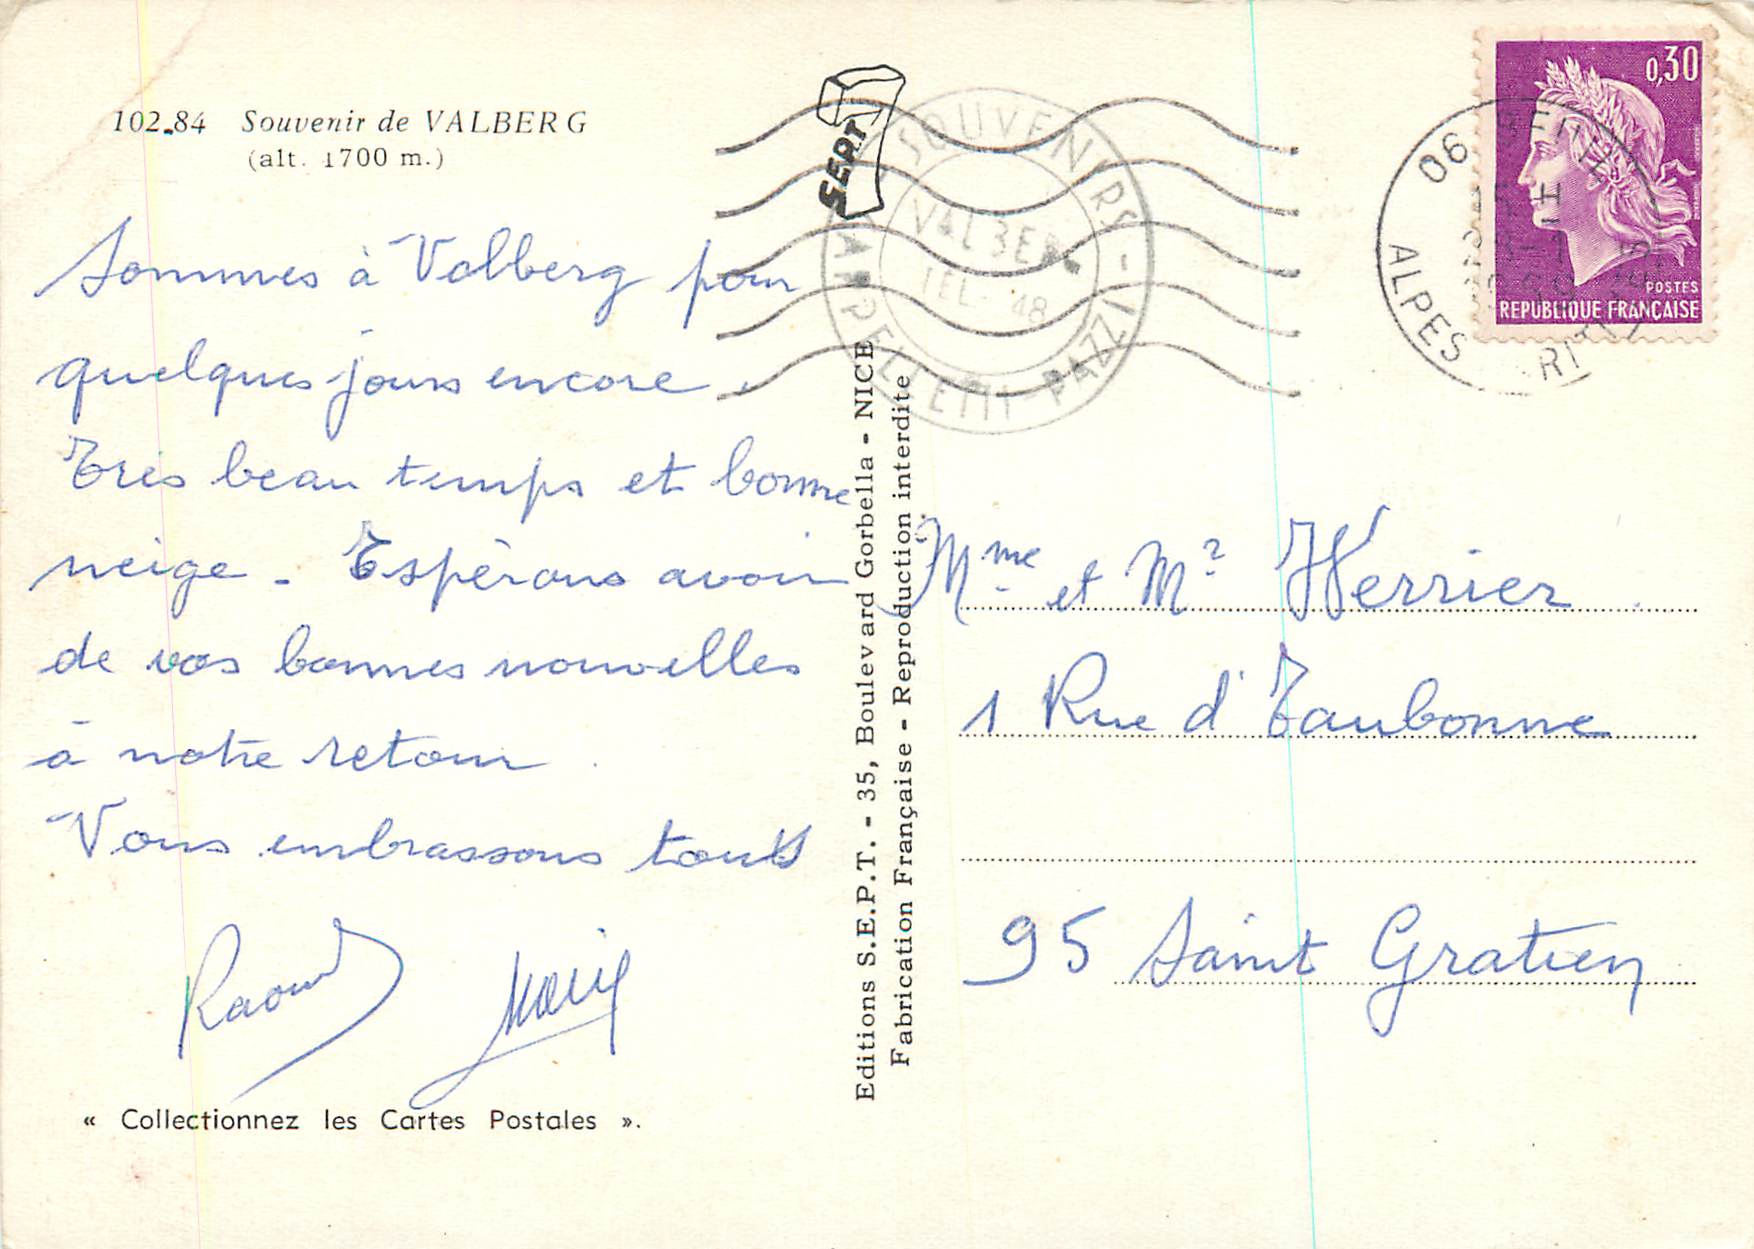 102.84 Souvenir de VALBERG
(alt. 1700 m.)
Sommes à Valberg pour
quelques jours encore.
Très beau temps et bonne
neige - Espèrons avoir
de vos bonnes nouvelles
à notre retour.
Vous embrassons tous
Raoul
« Collectionnez les Cartes Postales ».
SEPT
Editions S.E.P.T. - 35, Boulevard Gorbella - NICE
Fabrication Française - Reproduction interdite
SOUVENIRS -
VALBERG
TEL. 48
0,30
POSTES
REPUBLIQUE FRANÇAISE
06
ALPES
Mme et Mr Werrier
1 Rue d'Eaubonne
95 Saint Gratien